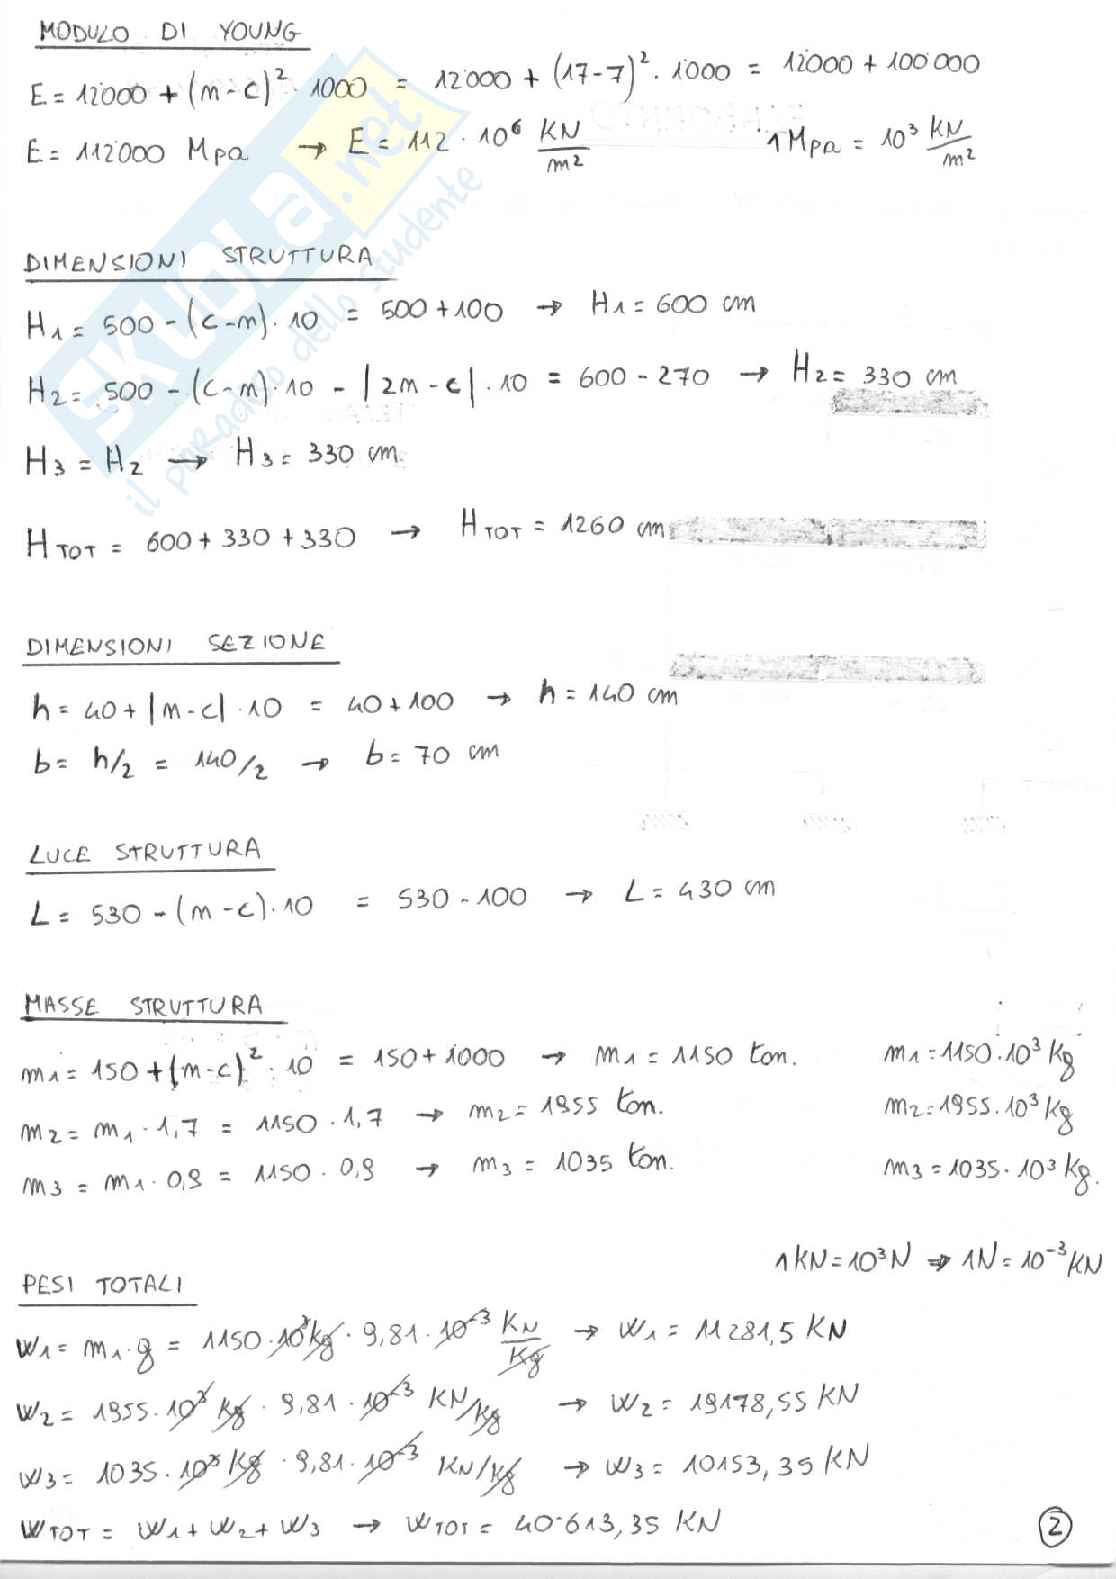 MODULO DI YOUNG
E = 12000 + (m - c)² · 1000 = 12000 + (17-7)² · 1000 = 12000 + 100000
E = 112000 Mpa → E = 112 · 10⁶ KN/m² 1Mpa = 10³ KN/m²
SKUOLA.net
il paradiso dello studente
DIMENSIONI STRUTTURA
H1 = 500 - (c-m) · 10 = 500 + 100 → H1 = 600 cm
H2 = 500 - (c-m) · 10 - |2m - c| · 10 = 600 - 270 → H2 = 330 cm
H3 = H2 → H3 = 330 cm
HTOT = 600 + 330 + 330 → HTOT = 1260 cm
DIMENSIONI SEZIONE
h = 40 + |m - c| · 10 = 40 + 100 → h = 140 cm
b = h/2 = 140/2 → b = 70 cm
LUCE STRUTTURA
L = 530 - (m - c) · 10 = 530 - 100 → L = 430 cm
MASSE STRUTTURA
m1 = 150 + (m-c)² · 10 = 150 + 1000 → m1 = 1150 ton. m1 = 1150 · 10³ Kg
m2 = m1 · 1,7 = 1150 · 1,7 → m2 = 1955 ton. m2 = 1955 · 10³ Kg
m3 = m1 · 0,9 = 1150 · 0,9 → m3 = 1035 ton. m3 = 1035 · 10³ Kg.
1KN = 10³N ⇒ 1N = 10⁻³ KN
PESI TOTALI
W1 = m1 · g = 1150 · 10³ Kg · 9,81 · 10⁻³ KN/Kg → W1 = 11281,5 KN
W2 = 1955 · 10³ Kg · 9,81 · 10⁻³ KN/Kg → W2 = 19178,55 KN
W3 = 1035 · 10³ Kg · 9,81 · 10⁻³ KN/Kg → W3 = 10153,35 KN
WTOT = W1 + W2 + W3 → WTOT = 40·613,35 KN
2